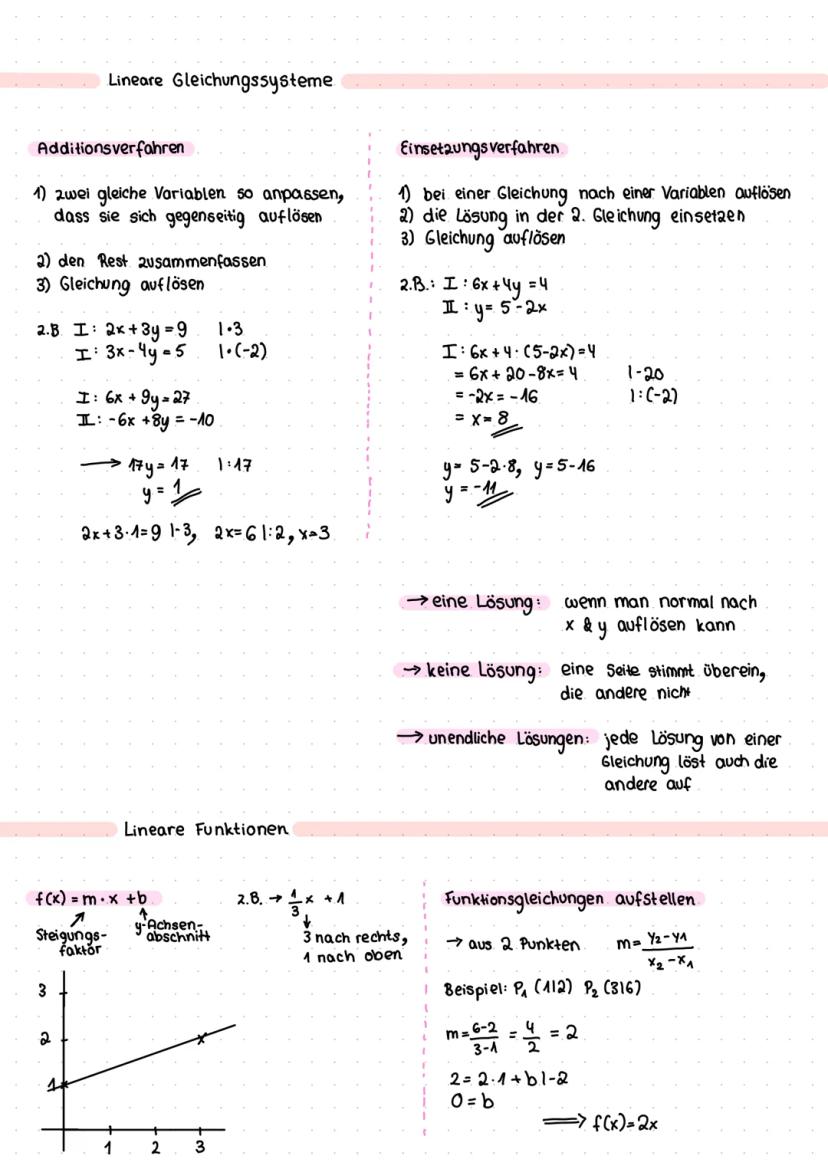 Lineare Gleichungssysteme
Additionsverfahren
1) zwei gleiche Variablen so anpassen,
dass sie sich gegenseitig auflösen
2) den Rest zusammenfassen
3) Gleichung auflösen
z.B. I: 2x+3y=9 |·3
I: 3x-4y=5 |·(-2)
I: 6x+9y=27
II: -6x+8y=-10
→ 17y=17 |:17
y=1
2x+3·1=9 |-3, 2x=6 |:2, x=3
Einsetzungsverfahren
1) bei einer Gleichung nach einer Variablen auflösen
2) die Lösung in der 2. Gleichung einsetzen
3) Gleichung auflösen
z.B.: I: 6x+4y=4
II: y=5-2x
I: 6x+4·(5-2x)=4
= 6x+20-8x=4 |-20
= -2x=-16 |:(-2)
= x=8
y=5-2·8, y=5-16
y=-11
→ eine Lösung: wenn man normal nach
x & y auflösen kann
→ keine Lösung: eine Seite stimmt überein,
die andere nicht
→ unendliche Lösungen: jede Lösung von einer
Gleichung löst auch die
andere auf
Lineare Funktionen
f(x)=m·x+b
Steigungs-
faktor
y-Achsen-
abschnitt
z.B. → 1/3 x +1
3 nach rechts,
1 nach oben
3
2
1
1 2 3
Funktionsgleichungen aufstellen
→ aus 2 Punkten m= y₂-y₁ / x₂-x₁
Beispiel: P₁ (1|2) P₂ (3|6)
m= 6-2 / 3-1 = 4/2 = 2
2=2·1+b |-2
0=b
⟹ f(x)=2x